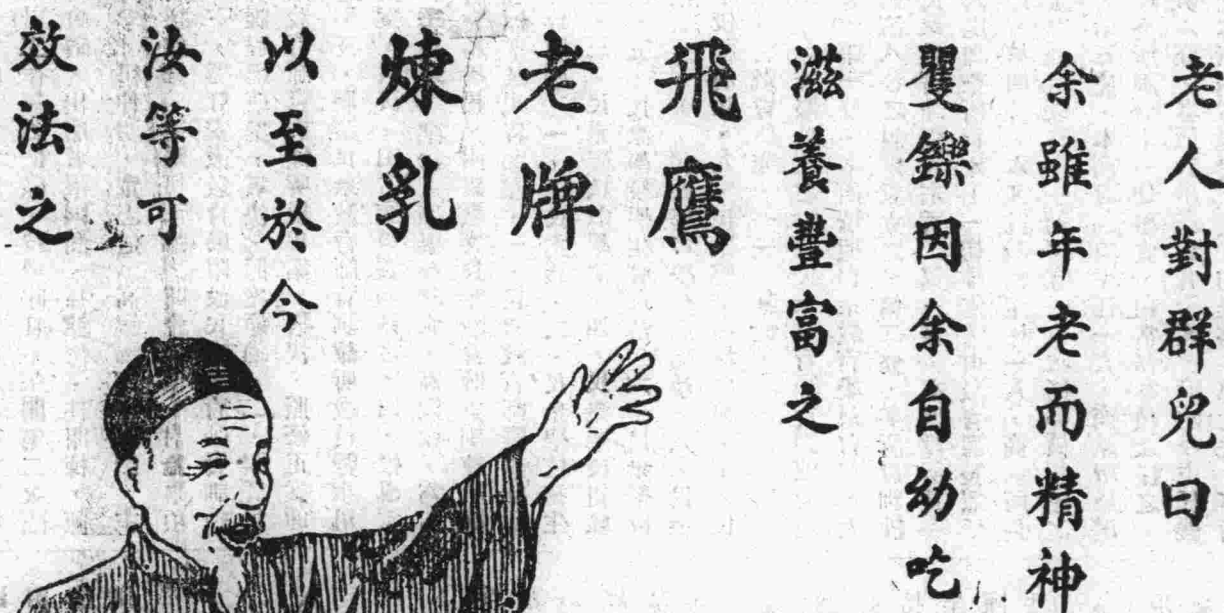 老人對群兒曰
余雖年老而精神
矍鑠因余自幼吃
滋養豐富之
飛鷹
老牌
煉乳
以至於今
汝等可
效法之